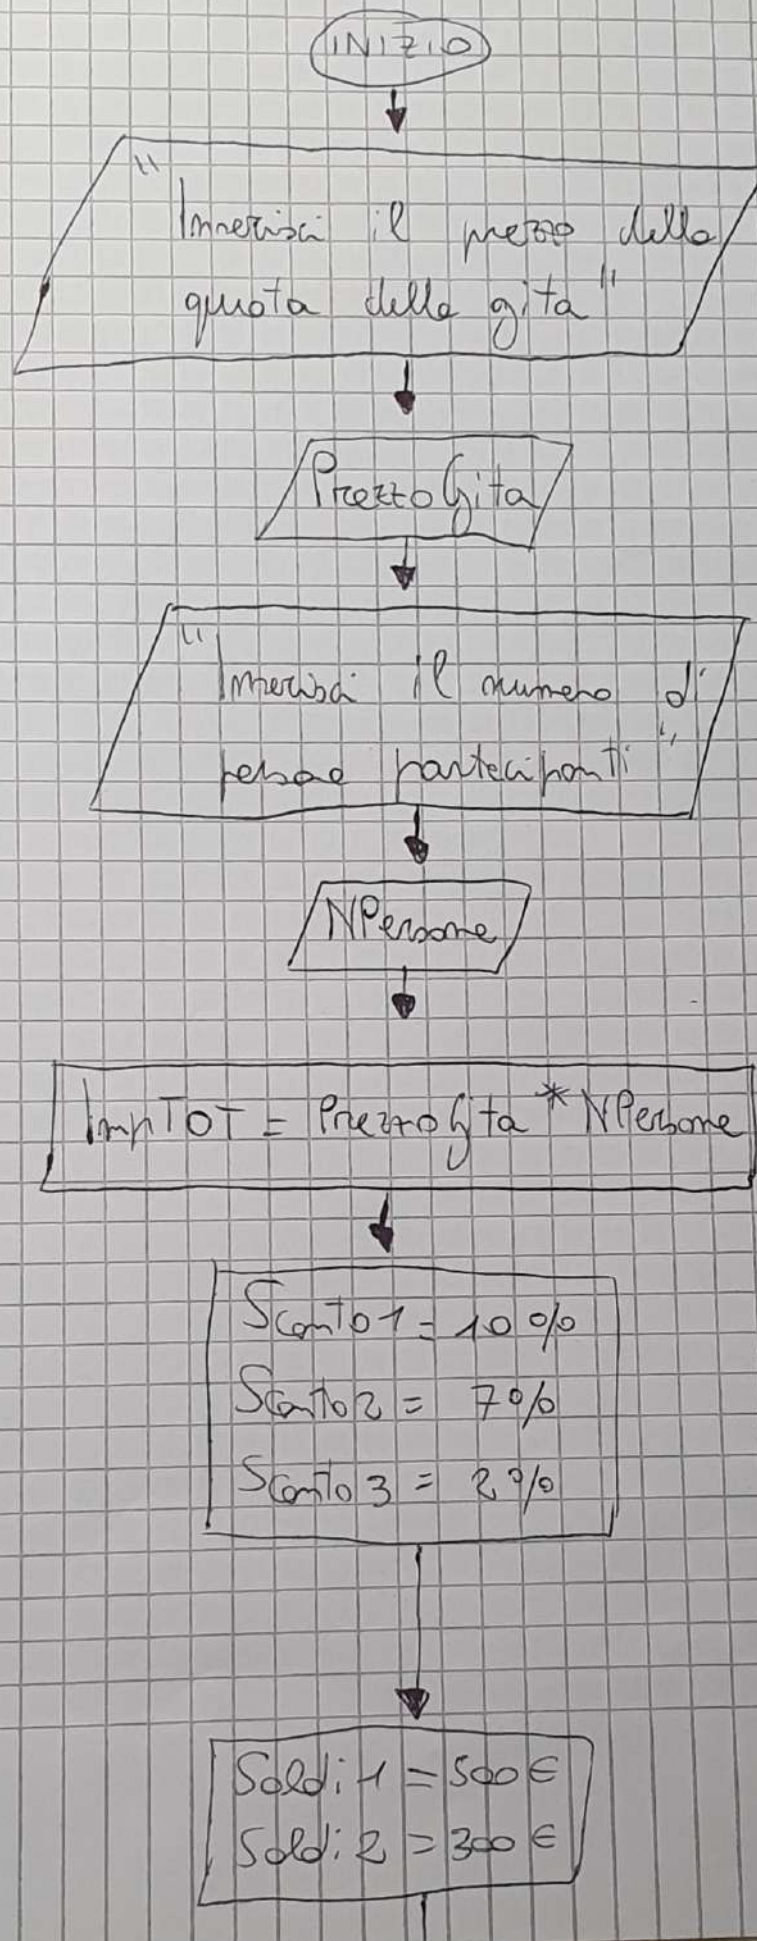 INIZIO
"Inserisci il prezzo della
quota della gita"
PrezzoGita
"Inserisci il numero di
persone partecipanti"
NPersone
ImpTOT = PrezzoGita * NPersone
Sconto1 = 10%
Sconto2 = 7%
Sconto3 = 2%
Soldi1 = 500€
Soldi2 = 300€